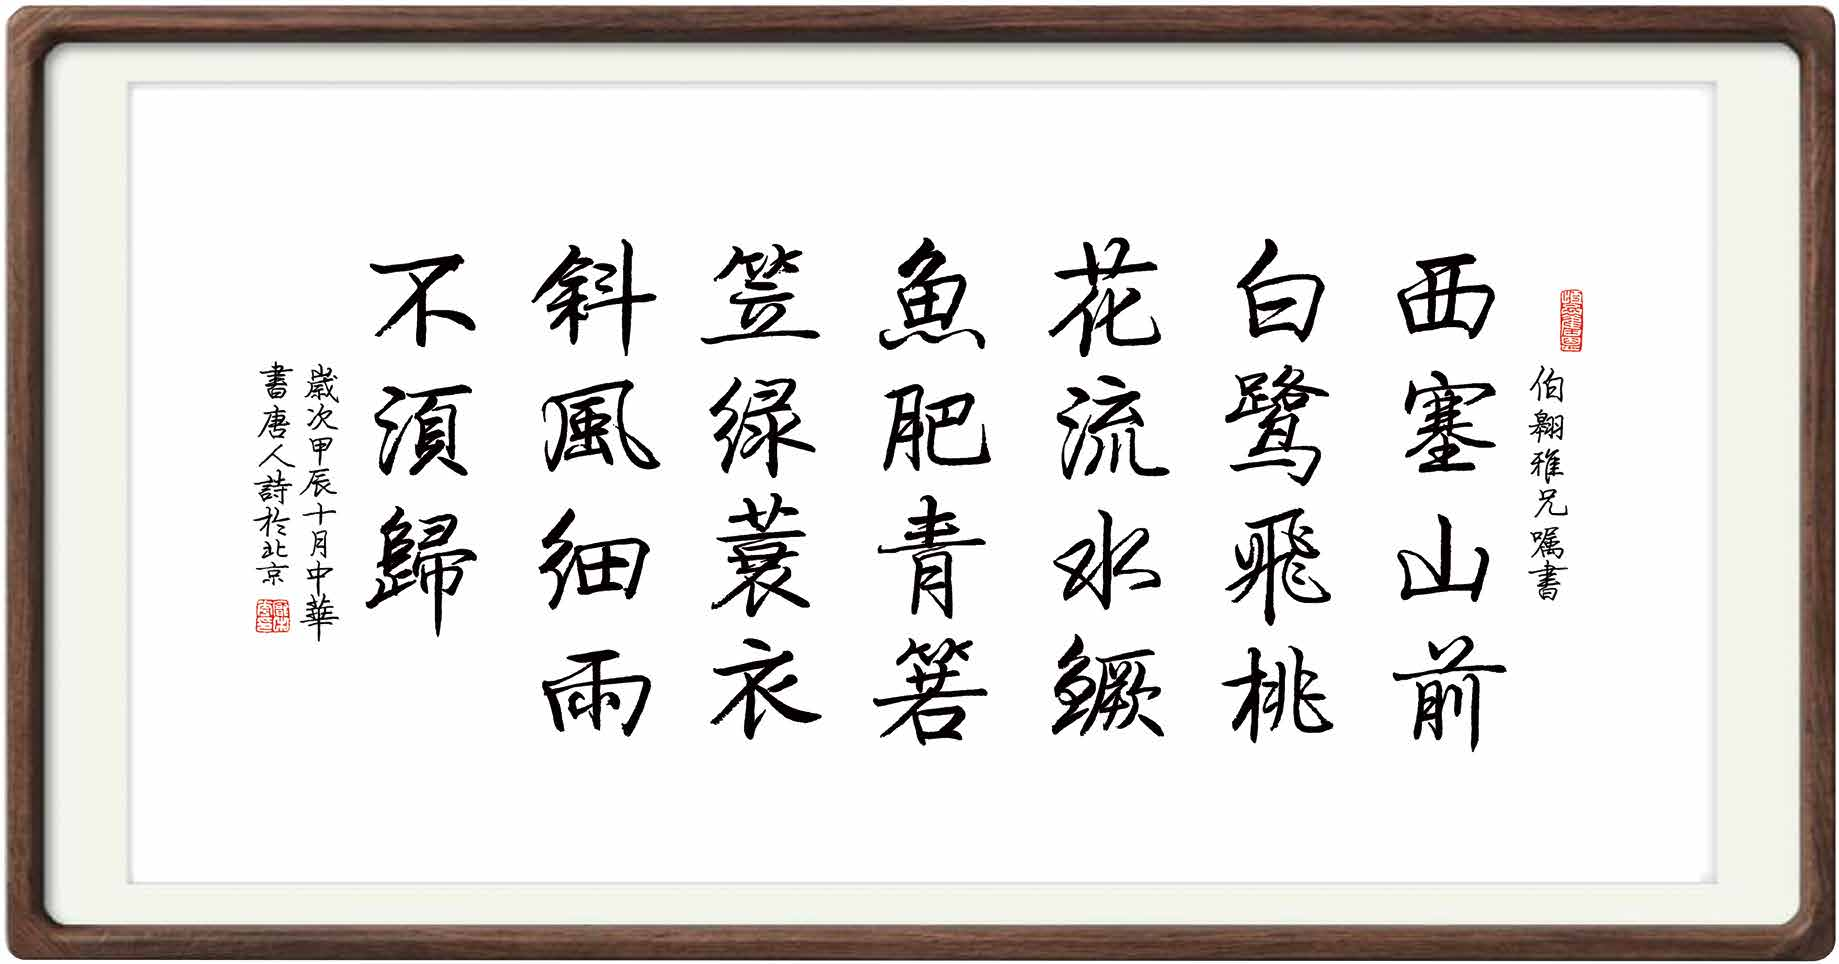 伯翱雅兄嘱書
西塞山前
白鹭飛桃
花流水鳜
魚肥青箬
笠绿蓑衣
斜風细雨
不須歸
歲次甲辰十月中華
書唐人詩於北京